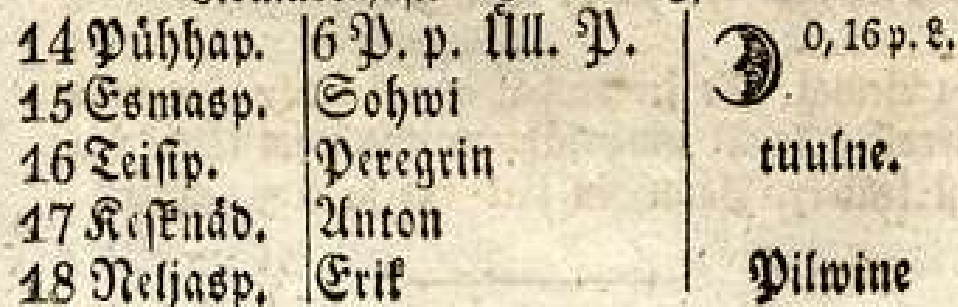 14 Pühhap. 6 P. p. Üll. P. 0, 16 p. L.
15 Esmasp. Sohwi
16 Teisip. Peregrin tuulne.
17 Kesknäd. Anton
18 Neljasp. Erik Pilwine